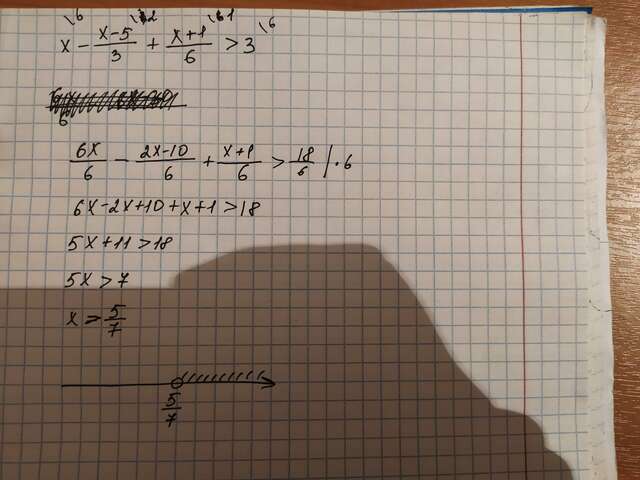 x\6 - (x-5)/3\2 + (x+1)/6\1 > 3\6
6x/6 - (2x-10)/6 + (x+1)/6 > 18/6 | · 6
6x-2x+10+x+1>18
5x+11>18
5x>7
x > 5/7
5/7